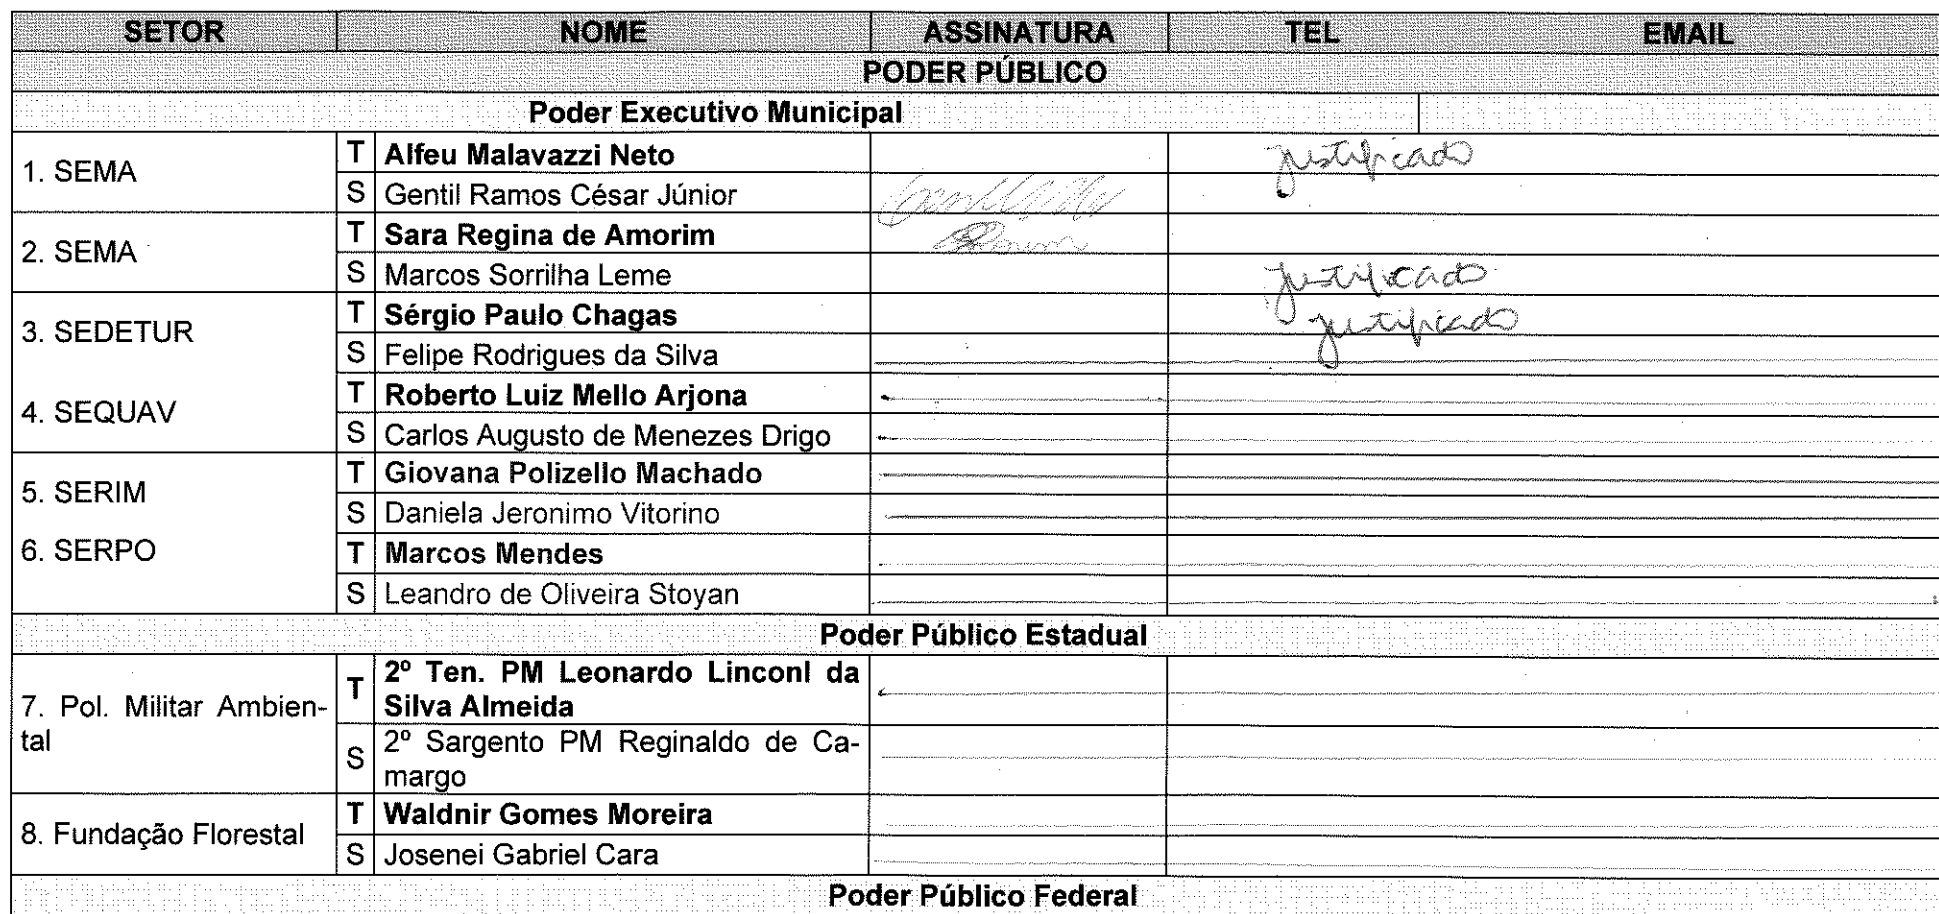 SETOR NOME ASSINATURA TEL EMAIL
PODER PÚBLICO
Poder Executivo Municipal
1. SEMA T Alfeu Malavazzi Neto justificado
S Gentil Ramos César Júnior
2. SEMA T Sara Regina de Amorim
S Marcos Sorrilha Leme justificado
3. SEDETUR T Sérgio Paulo Chagas justificado
S Felipe Rodrigues da Silva
4. SEQUAV T Roberto Luiz Mello Arjona
S Carlos Augusto de Menezes Drigo
5. SERIM T Giovana Polizello Machado
S Daniela Jeronimo Vitorino
6. SERPO T Marcos Mendes
S Leandro de Oliveira Stoyan
Poder Público Estadual
7. Pol. Militar Ambien-
tal
T 2º Ten. PM Leonardo Linconl da
Silva Almeida
S 2º Sargento PM Reginaldo de Ca-
margo
8. Fundação Florestal T Waldnir Gomes Moreira
S Josenei Gabriel Cara
Poder Público Federal